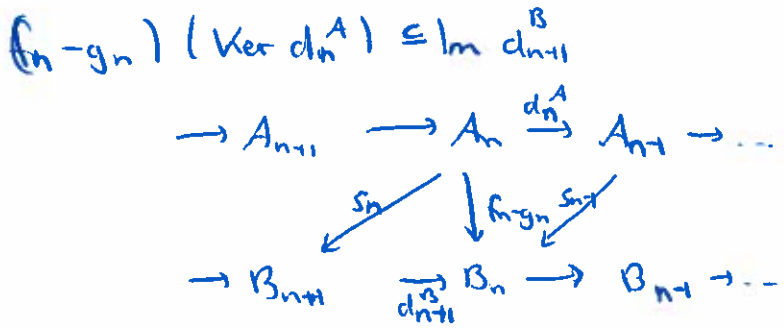 (fₙ-gₙ) (Ker dₙᴬ) ⊆ Im dₙ₊₁ᴮ
→ Aₙ₊₁ → Aₙ →(dₙᴬ) Aₙ₋₁ → ...
sₙ fₙ-gₙ sₙ₋₁
→ Bₙ₊₁ →(dₙ₊₁ᴮ) Bₙ → Bₙ₋₁ → ...